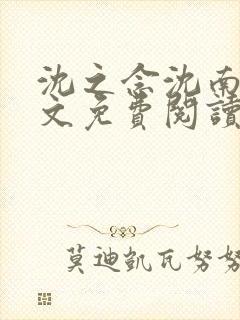 沈之念沈南
文免費閱讀
莫迪凱瓦努努